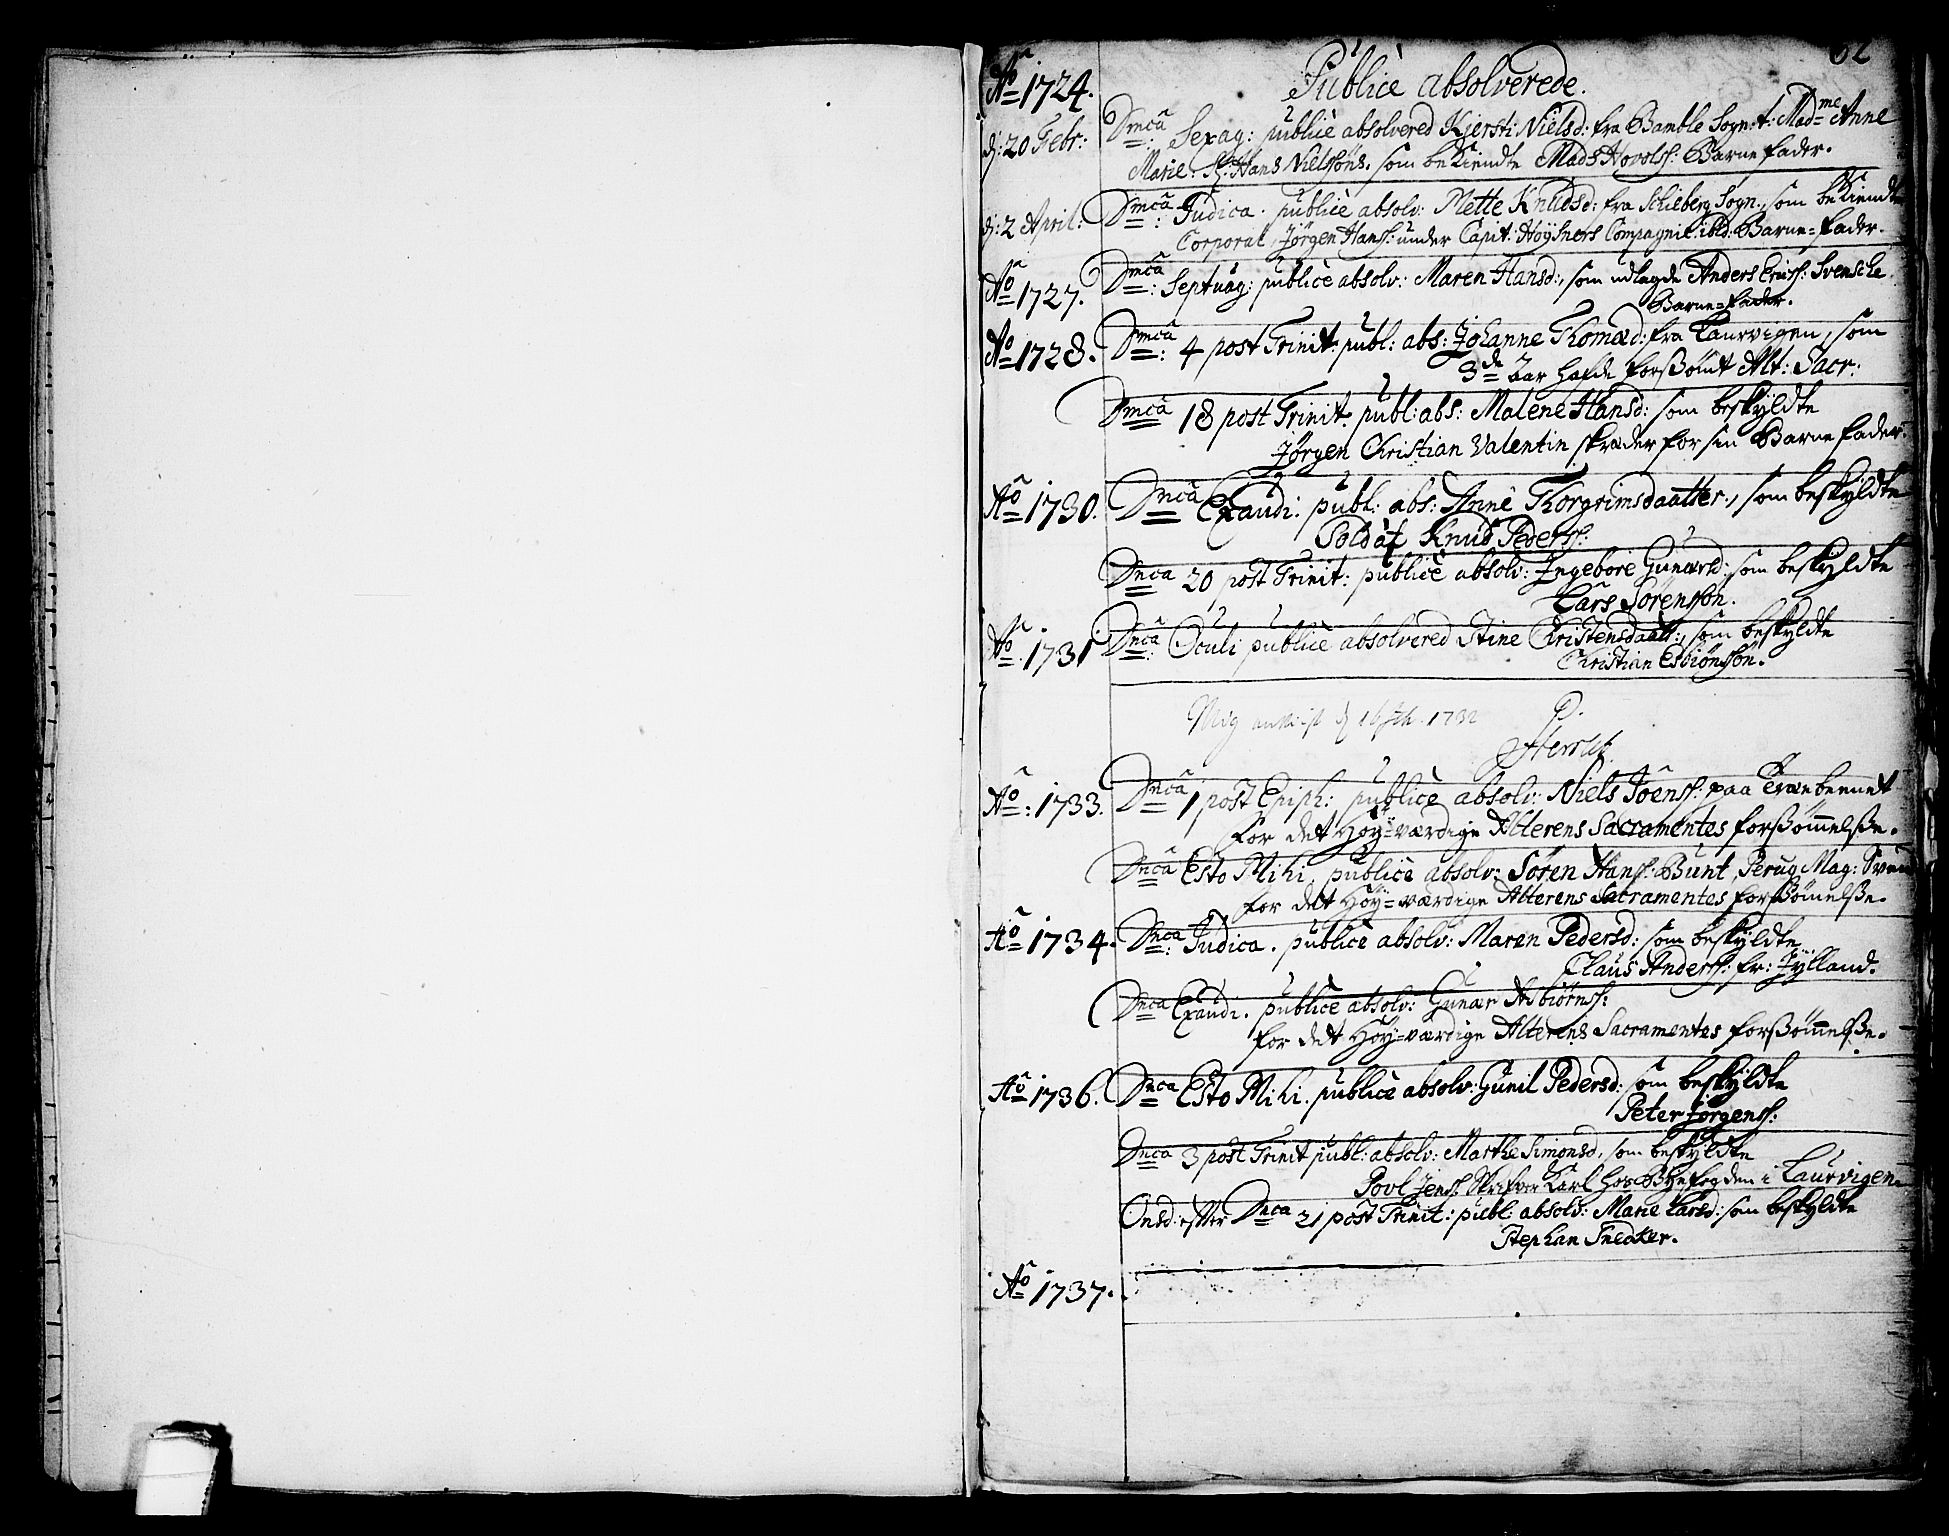 62
Publicè absolverede.
Aô 1724.
d: 20 Febr: Dmcâ Sexag: publicè absolvered Kjersti Nielsd: fra Bamble Sogn: t: Madme Anne
Marie. Sr: Hans Nielssöns, som bekiendte Mads Hovolss: Barnefader.
d: 2 April: Dmcâ: Judica. publicè absolv: Mette Knudsd: fra Schieberg Sogn, som bekiendte
Corporal Jörgen Hanss: under Capit: Hoysners Compagnie ibid: Barne=fader.
Aô 1727. Dmcâ: Septuag: publicè absolv: Maren Hansd:, som udlagde Anders Erichs: Svenske
Barne=fader.
Aô 1728. Dmcâ: 4 post Trinit: publ: abs: Johanne Thomæd: fra Laurvigen, som
3de Aar hafde forsömt Alt: Sacr:
Dmcâ 18 post Trinit. publ: abs: Malene Hansd: som beskyldte
Jörgen Christian Valentin skræder for sin Barnefader.
Aô 1730. Dncâ Exaudi: publ: abs: Anne Thorgrimsdaatter, som beskyldte
Soldat Knud Pederss:
Dnca 20 post Trinit: publicè absolv: Ingebore Gunærsd: som beskyldte
Lars Sörenssön.
Aô 1731 Dncâ: Oculi publicè absolvered Stine Christensdaatt:, som beskyldte
Christian Esbiönssön.
1732
Aô: 1733. Dncâ 1 post Epiph: publicè absolv: Niels Joenss: paa Træebeenet
for det Höy=værdige Alterens Sacramentes forsömmelse.
Dncâ Esto Mihi. publicè absolv: Sören Hanss: Bunt, Perug Mag: Svend
for det Höy=værdige Alterens Sacramentes forsömmelse.
Aô 1734. Dnca: Judica. publicè absolv: Maren Pedersd: som beskyldte
Claus Anderss: fr: Jylland.
Dnca Exaudi. publicè absolv: Gunær Asbiörnss:
for det Höy=værdige Alterens Sacramentes forsömmelse.
Aô 1736. Dnca Esto Mihi. publicè absolv: Gunil Pedersd: som beskyldte
Peter Jörgenss:
Dnca 3 post Trinit publ: absolv: Marthe Simonsd, som beskyldte
Povl Jenss: Skrifver Karl hos Byefogden i Laurvigen
Onsd: efter Dnca 21 post Trinit: publ: absolv: Marie Larsd: som beskyldte
Stephan Snedker.
Aô 1737.